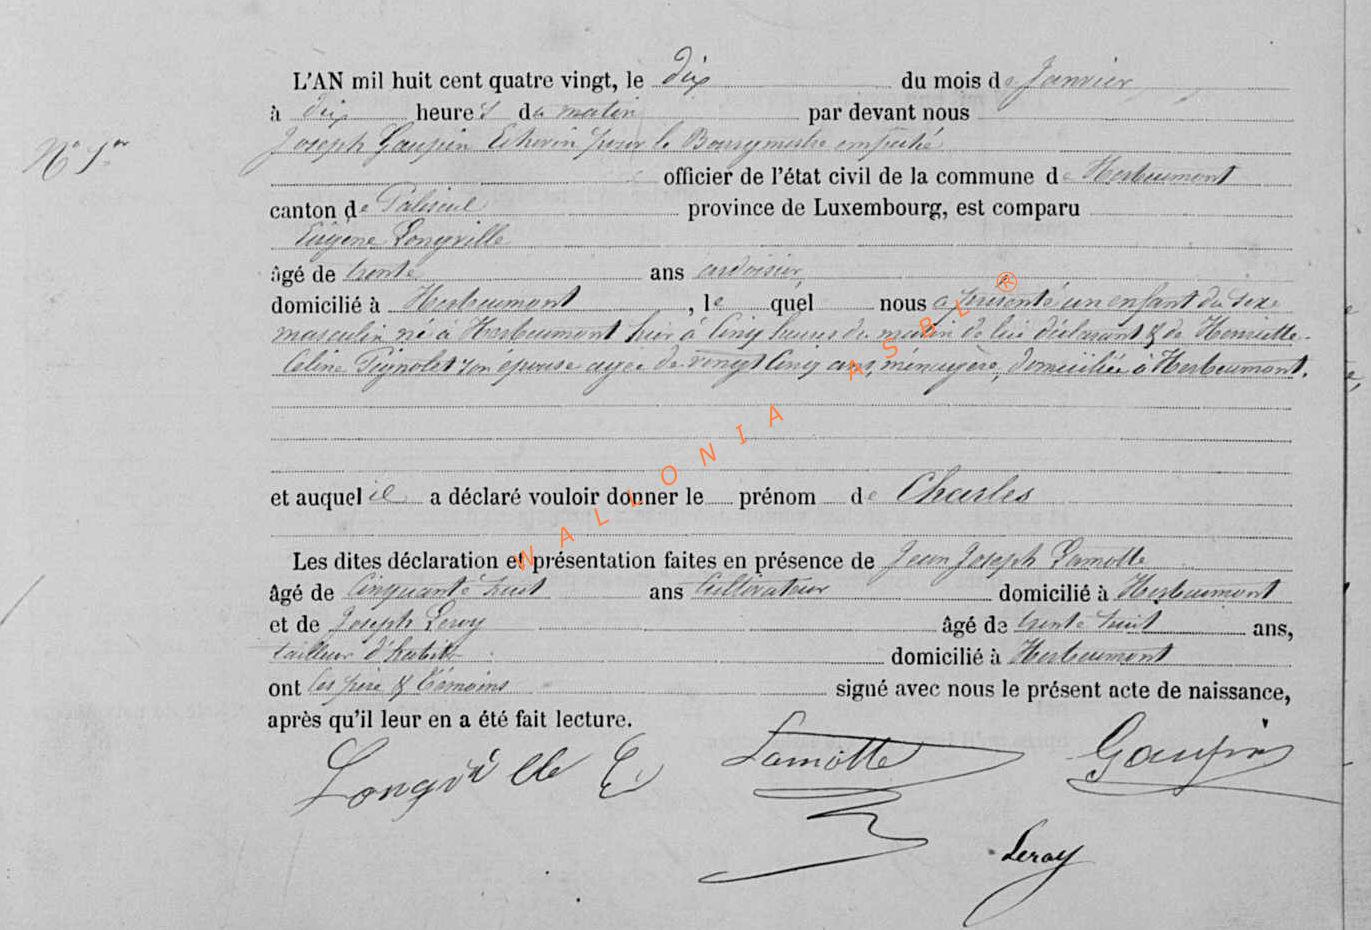 L'AN mil huit cent quatre vingt, le dix du mois de Janvier
à dix heures du matin par devant nous
Joseph Gaupin Echevin pour le Bourgmestre empêché
officier de l'état civil de la commune de Herbeumont
canton de Paliseul province de Luxembourg, est comparu
Eugène Longville
âgé de trente ans ardoisier
domicilié à Herbeumont, lequel nous a présenté un enfant du sexe
masculin né à Herbeumont hier à cinq heures du matin de lui déclarant & de Henriette
Céline Pignolet son épouse agée de vingt cinq ans, ménagère, domiciliée à Herbeumont.
et auquel il a déclaré vouloir donner le prénom de Charles
Les dites déclaration et présentation faites en présence de Jean Joseph Lamotte
âgé de Cinquante huit ans Cultivateur domicilié à Herbeumont
et de Joseph Leroy âgé de trente huit ans,
tailleur d'habits domicilié à Herbeumont
ont les père & témoins signé avec nous le présent acte de naissance,
après qu'il leur en a été fait lecture.
Longville E Lamotte Gaupin
Leroy
WALLONIA ASBL ®